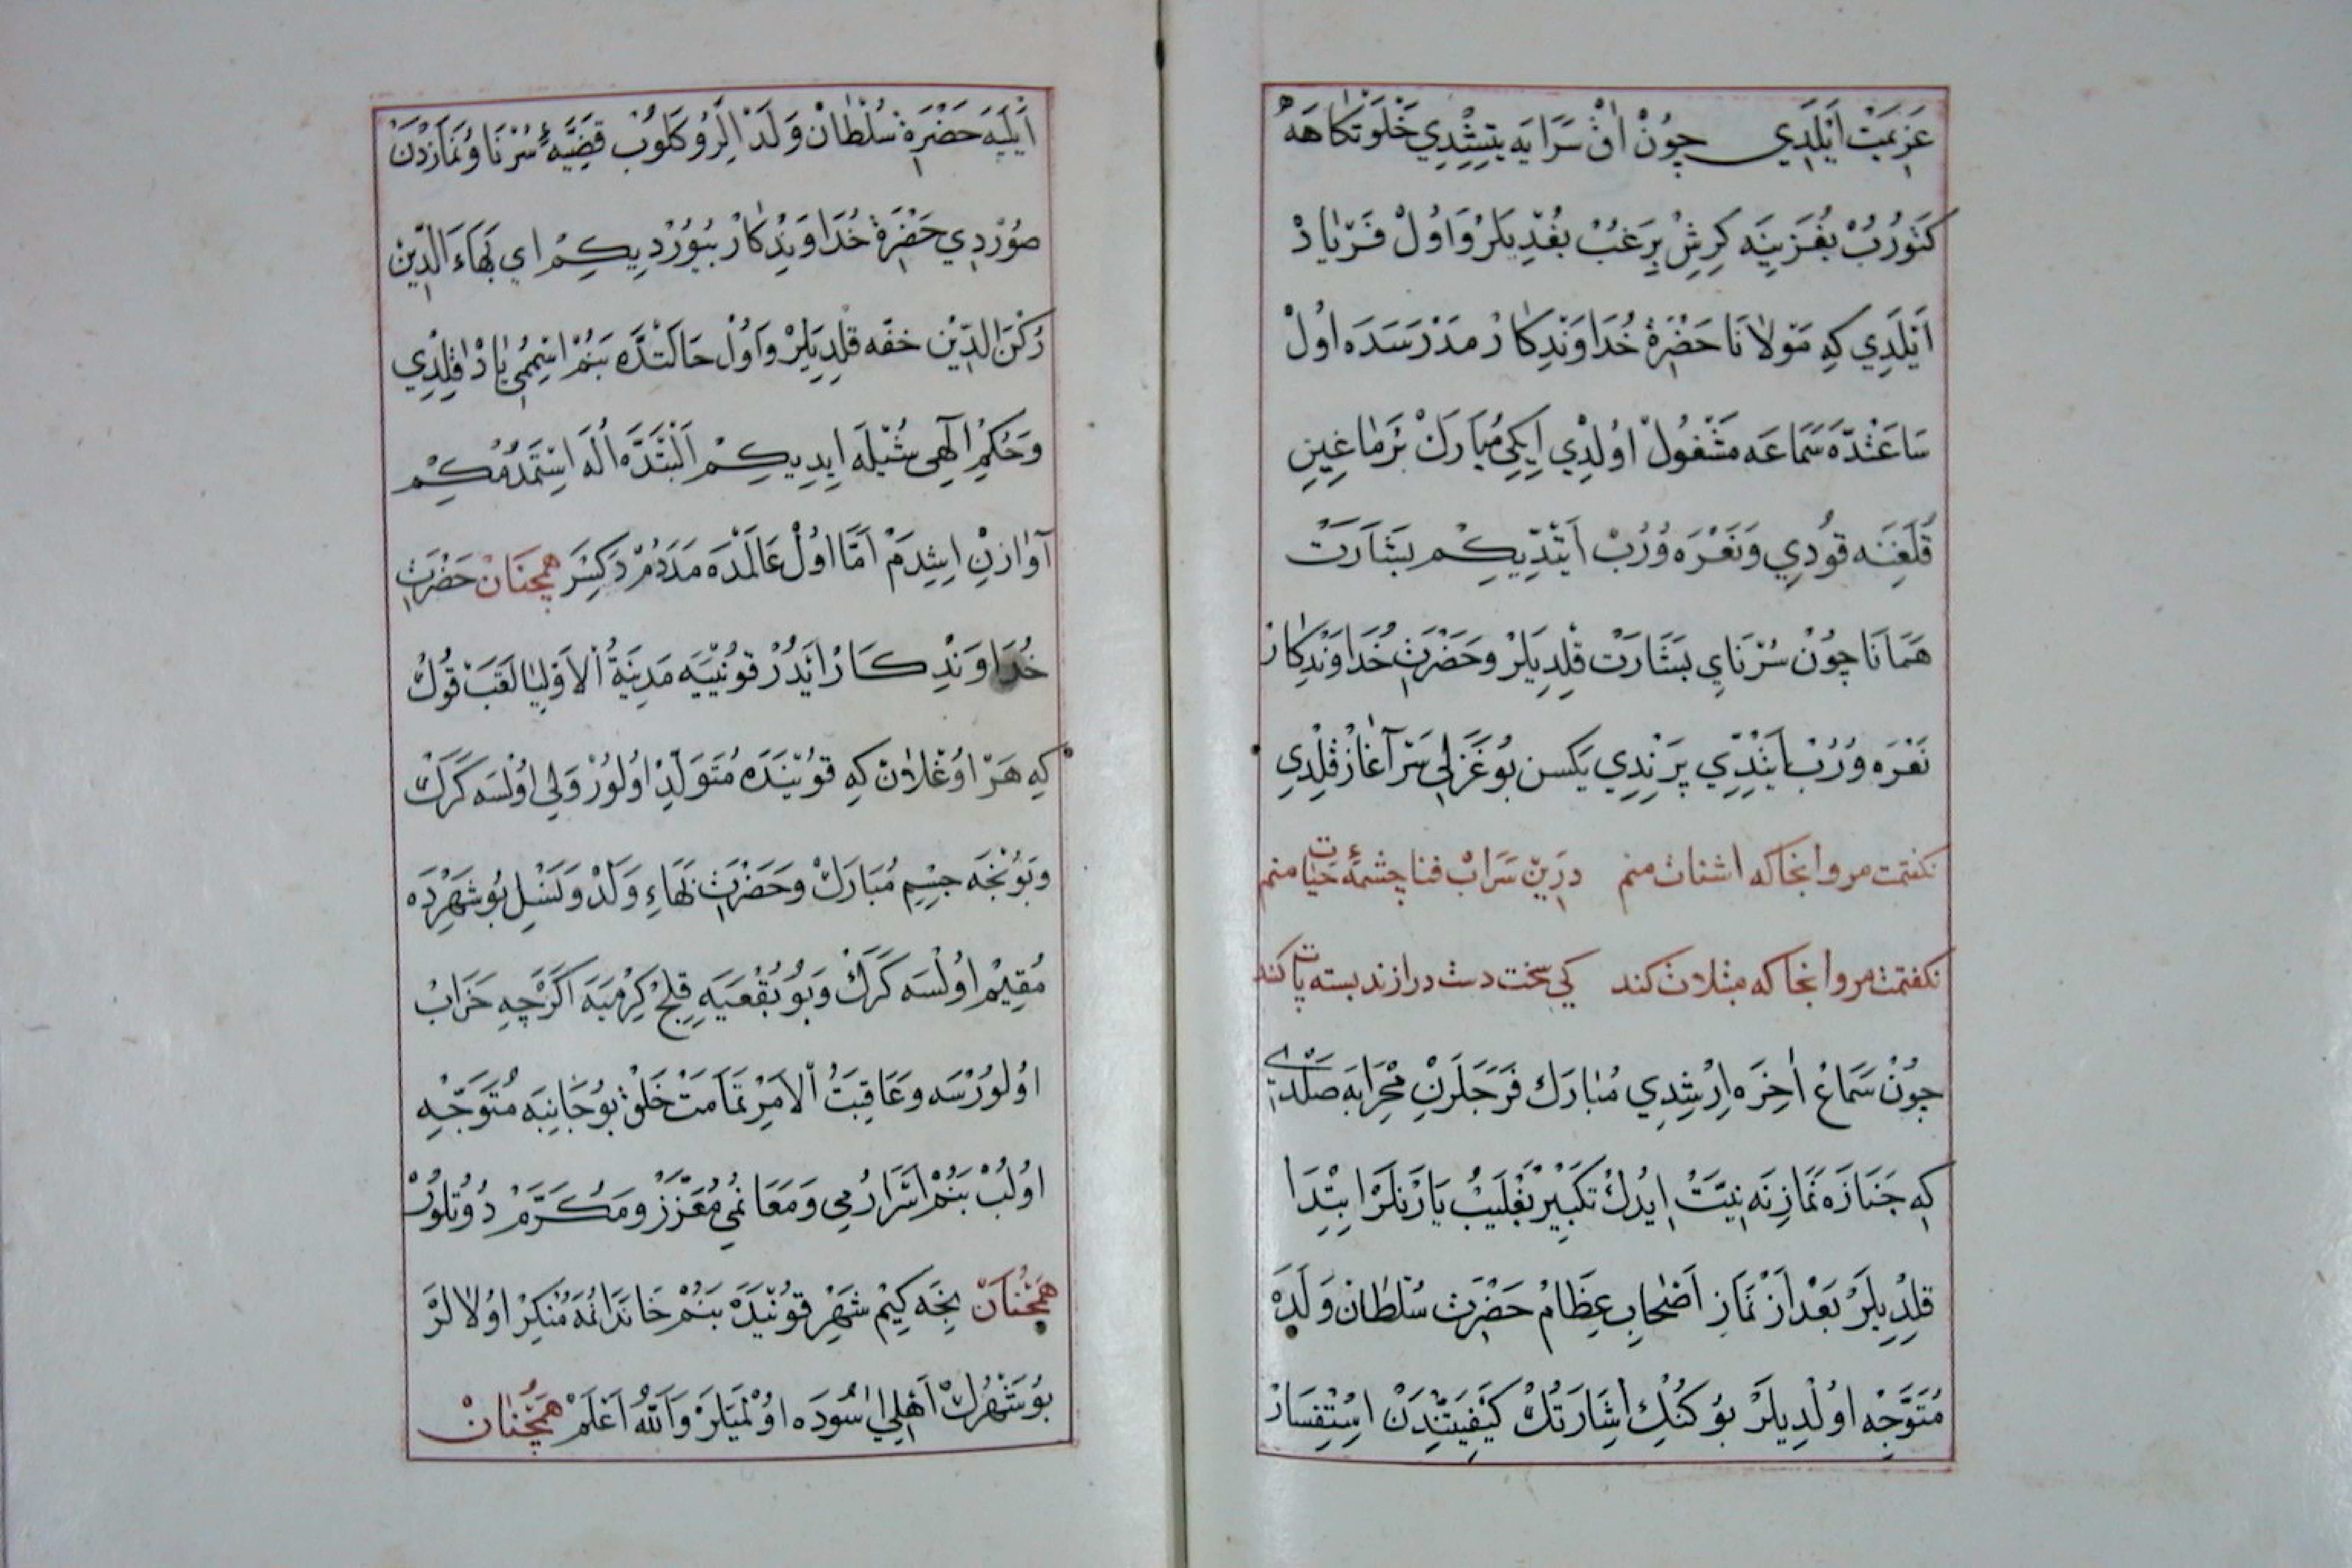 عَزِيمَتْ اَيْلَدِي چُونْ اٰقْ سَرَايَه يِتِشْدِي خَلْوَتْكَاهَه
كَتُورُبْ بُغَزِينَه كِرِشْ بِرَغُبْ بُغْدِيلَرْ وَاُولْ فَرْيَادْ
اَيْلَدِي كِه مَوْلَانَا حَضْرَةْ خُدَاوَنْدِكَارْ مَدْرَسَدَه اُولْ
سَاعَتْدَه سَمَاعَه مَشْغُولْ اوُلْدِي اِيكِي مُبَارَكْ بَرْمَاغِينِ
قُلَغِنَه قُودِي وَنَعْرَه وُرُبْ اَيْتْدِيكِمْ بَشَارَتْ
هَمَانَا چُونْ سُرْنَايِ بَشَارَتْ قِلْدِيلَرْ وَحَضْرَتِ خُدَاوَنْدِكَارْ
نَعْرَه وُرُبْ اَيْتْدِي پَرَنْدِي يَكْسَنْ بُو غَزَلِي سَرْآغَازْ قِلْدِي
نكفتمت مرو انجا كه اشنات منم درين سراب فنا چشمهٔ حيات منم
نكفتمت مرو انجا كه مبتلات كند كي سخت دست درازند بسته پات كند
چُونْ سَمَاعْ اٰخِرَه اِرِشْدِي مُبَارَكْ فَرَجَلَرِنْ مِحْرَابَه صَلْدِي
كِه جَنَازَه نَمَازِنَه نِيَّتْ اِيدُكْ تَكْبِيرْ بَغْلَيُبْ يَارَنْلَرْ اِبْتِدَا
قِلْدِيلَرْ بَعْدَ اَزْ نَمَازِ اَصْحَابِ عِظَامْ حَضْرَتِ سُلْطَانْ وَلَدَه
مُتَوَجِّه اوُلْدِيلَرْ بُو كُنُكْ اِشَارَتُكْ كَيْفِيَتِنْدَنْ اِسْتِفْسَارْ
اَيْلَيَه حَضْرَةِ سُلْطَانْ وَلَدْ اِلَرُو كَلُوبْ قَضِيَّهٔ سُرْنَا وُ نَمَازْدَنْ
صُورْدِي حَضْرَةِ خُدَاوَنْدِكَارْ بُيُورْدِيكِمْ اي بَهَاءَالدِّينْ
رُكْنَ الدِّينْ خفَّه قِلْدِيلَرْ وَاُولْ حَالَتْدَه بَنُمْ اِسْمُمِي يَادْ قِلْدِي
وَحُكْمِ اِلٰهِي شُيْلَه اِيدِيكِمْ اَلْبَتَّدَه اُلَه اِسْتَمَدُمْكِمْ
آوَازِنْ اِشِدَمْ اَمَّا اُولْ عَالَمْدَه مَدَدُمْ دَكِسَرْ همچنان حَضْرَتِ
خُدَاوَنْدِكَارْ اَيْدُرْ قُونِيَيَه مَدِينَةُ الْاَوْلِيَا لَقَبْ قُوكْ
كِه هَرْ اوُغْلَانْ كِه قُونِيَدَه مُتَوَلِّدْ اوُلُورْ وَلِي اوُلْسَه كَرَكْ
وَبُونْجَه جِسْمِ مُبَارَكْ وَحَضْرَتِ بَهَاءِ وَلَدْ وَنَسْلِ بُو شَهِرْدَه
مُقِيمْ اوُلْسَه كَرَكْ وَبُو بُقْعَيَه قِلِچْ كِرْمَيَه اَكَرْچِه خَرَابْ
اوُلُورْسَه وَعَاقِبَتُ الْاَمِرْ تَمَامَتْ خَلْقْ بُو جَانِبَه مُتَوَجِّه
اوُلُبْ بَنُمْ اَسْرَارُمِي وَمَعَانُمِي مُعَزَّزْ وَمُكَرَّمْ دُوتُلُورْ
همچنان نِجَه كِيمْ شَهْرِ قُونِيَدَه بَنُمْ خَانَدَانُمَه مُنْكِرْ اوُلَالَرْ
بُو شَهْرُكْ اَهْلِي اٰسُودَه اوُلْمَيَلَرْ وَاَللّٰهُ اَعْلَمْ همچنان